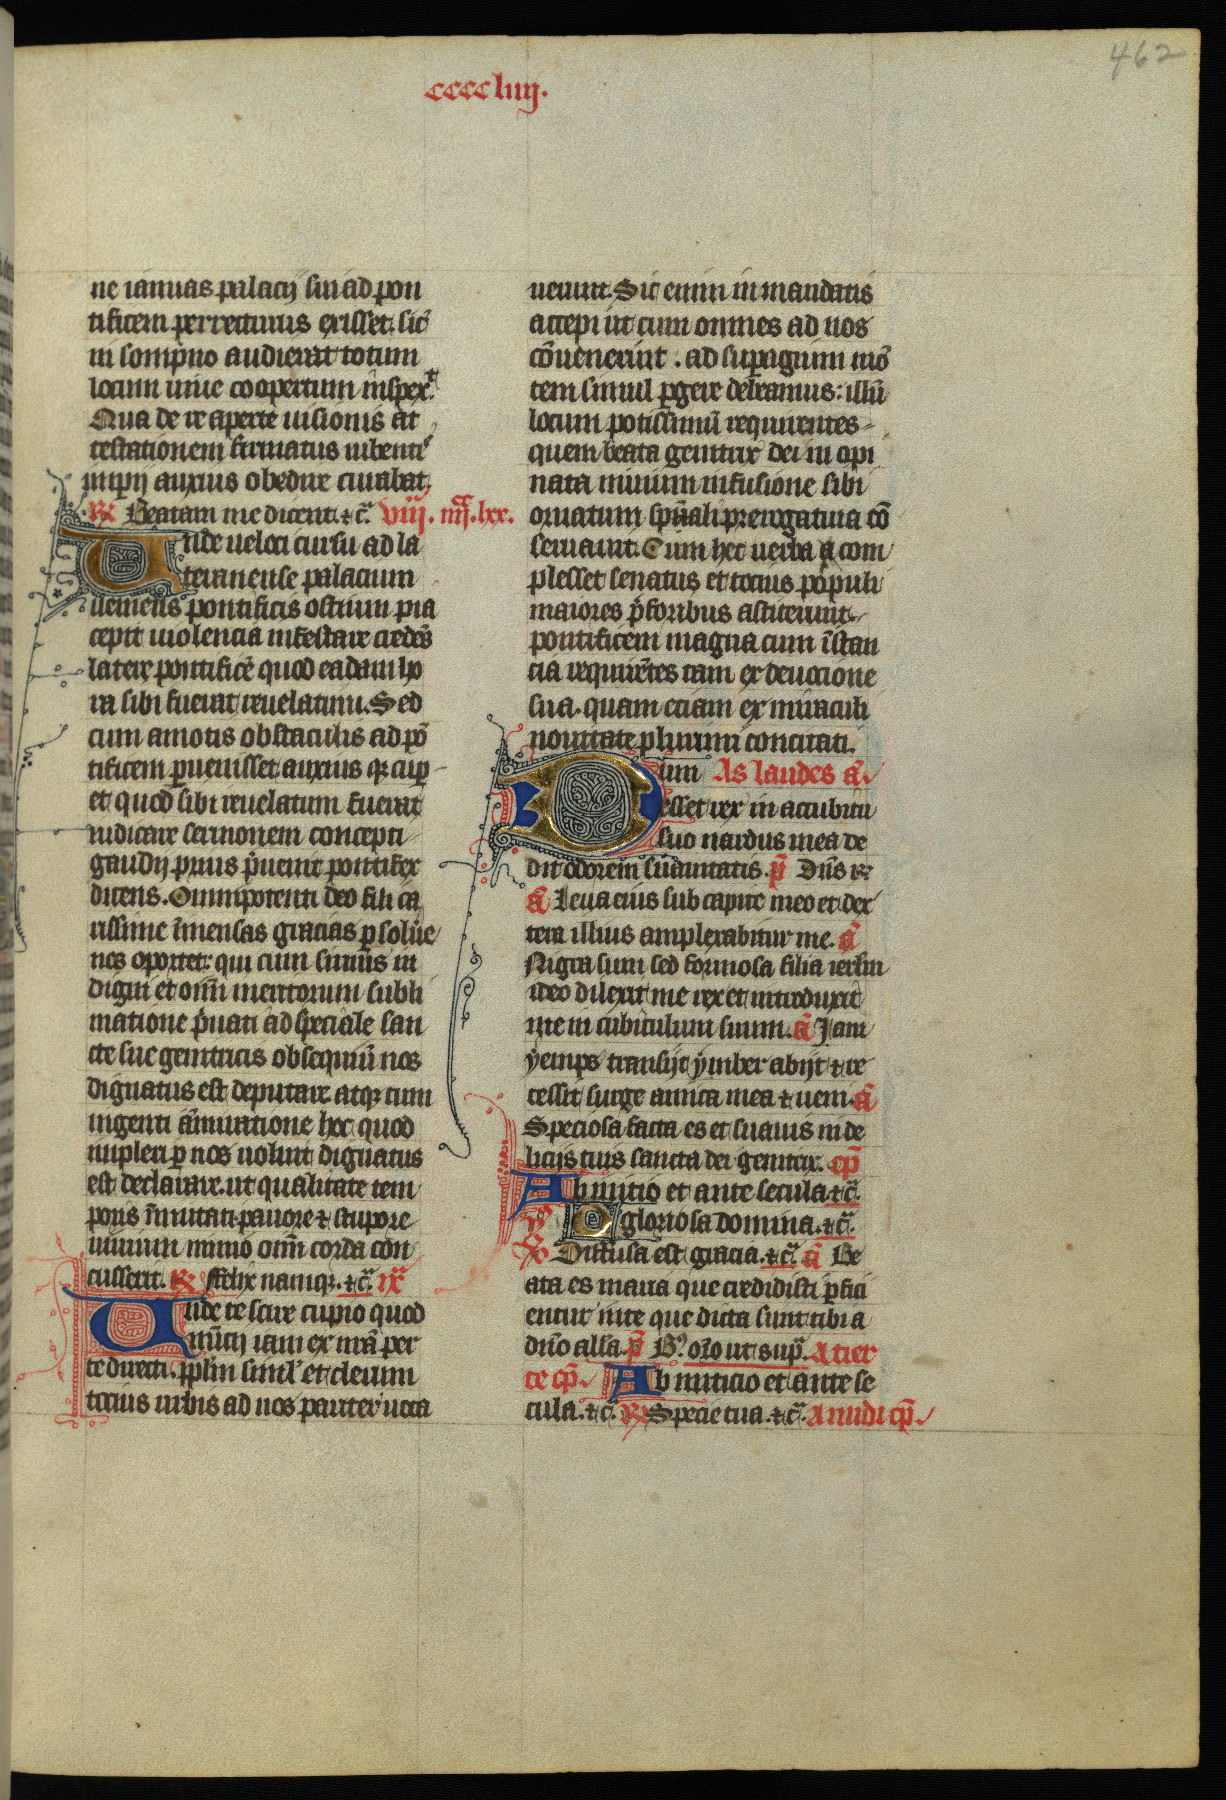 462
ccccliiij.
ne ianuas palacij sui ad pon
tificem perrecturus exisset. sic̄
in sompno audierat totum
locum niue coopertum inspexͭ
Qua de re aperte uisionis at
testationem firmatus iubentē
impij auxius obedire curabat.
R̷ Beatam me dicent. ⁊c̄. viij. iiij. lxx.
Inde ueloci cursu ad la
teranense palacium
ueniens pontificis ostium pia
cepit uiolencia infestare credēs
latere pontificē quod eadam ho
ra sibi fuerat reuelatum. Sed
cum amotis obstaculis ad pō
tificem ꝑuenisset auxius qꝫ cuꝑ
et quod sibi reuelatum fuerat
iudicare sermonem concepti
gaudij prius p̄uenit pontifex
dicens. Omnipotenti deo fili ca
rissime īmensas gracias ꝑsolūe
nos oportet: qui cum simus in
digni et om̄i meritorum subli
matione p̄uati ad speciale san
cte sue genitricis obsequiū nos
dignatus est deputare. atqꝫ cum
ingenti ām̄iratione hoc quod
impleri ꝑ nos uoluit dignatus
est declarare. ut qualitate tem
poris īmutati pauore ⁊ stupore
nimium om̄i corda con
cusserit. R̷ Felix namqꝫ. ⁊c̄. ix
Unde te scire cupio quod
nūcij iam ex nr̄a per
te directi. ꝓplm̄ siml' et clerum
tocius urbis ad nos pariter uoca
uerunt. Sic enim in mandatis
accepi ut cum omnes ad nos
cōuenerint. ad supagium mō
tem simul ꝑgere debeamus: illū
locum potissimū requirentes
quem beata genitrix dei in opi
nata niuium infusione sibi
ornatum spūali prerogatiua cō
seruauit. Cum hec uerba a com
plesset senatus et tocius populi
maiores p̄ foribus astiterunt.
pontificem magna cum īstan
cia requirētes tam ex deuocione
sua. quam eciam ex miraculi
nouitate plurimi concitati.
Dum As laudes a͞
esset rex in accubitu
suo nardus mea de
dit odorem suauitatis. p̄ Dūs r̷
a͞ Leua eius sub capite meo et dex
tera illius amplexabitur me. a͞
Nigra sum sed formosa filia ierlm̄
ideo dilexit me rex et introduxit
me in cubiculum suum. a͞ Iam
ẏemps transijt ẏmber abijt ⁊ re
cessit surge amica mea ⁊ ueni. a͞
Speciosa facta es et suauis in de
licijs tuis sancta dei genitrix. cp̄
Ab initio et ante secula. ⁊c̄.
O gloriosa domina. ⁊c̄.
V̷ Diffusa est gracia. ⁊c̄. a͞ Be
ata es maria que credidisti ꝑfici
entur in te que dicta sunt tibi a
dn̄o alla. p̄ B. oro ut sup̄. A ter
ce cp̄. Ab inicio et ante se
cula. ⁊c̄. R̷ Specie tua. ⁊c̄. A nudi cp̄.